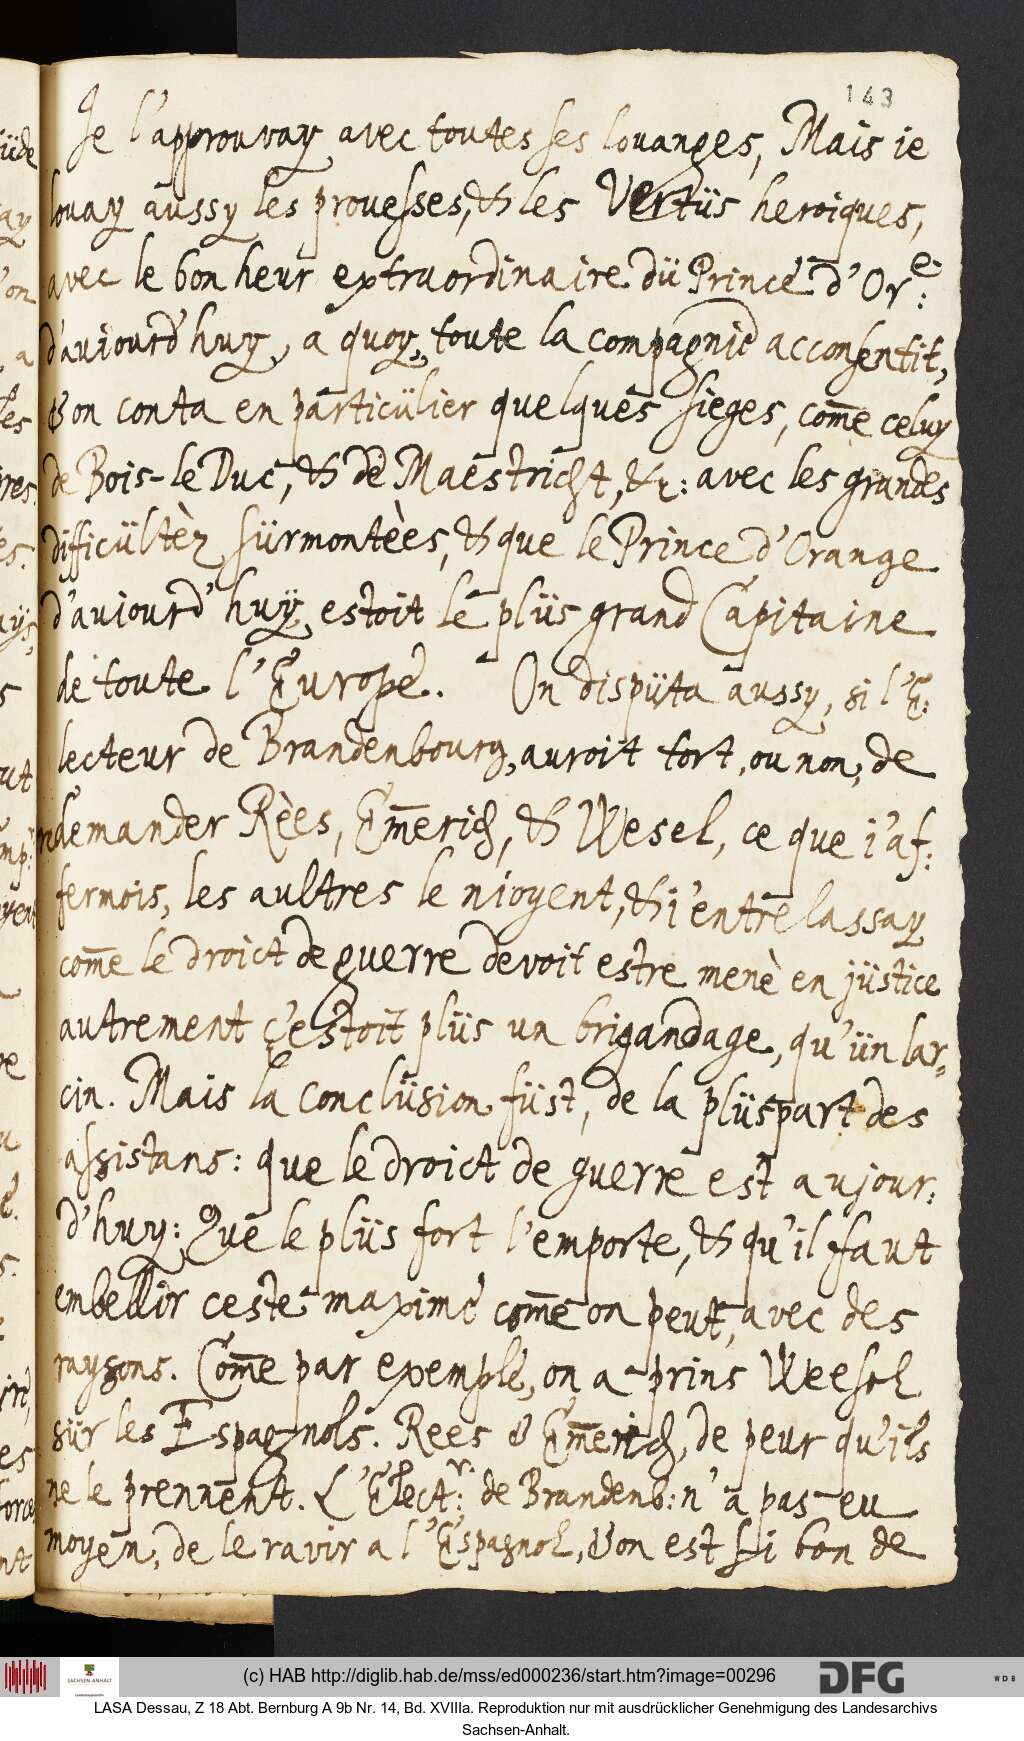 143
Je l'approuvay avec toutes ses louanges, Mais ie
louay aussy les prouesses, & les Vertüs heroiques,
avec le bonheur extraordinaire dü Prince d'Or:e
d'aujourd'huy, a quoy, toute la compagnie acconsentit,
& on conta en particülier quelques sieges, com̄e celuy
de Bois-le Duc, & de Maestricht, &c: avec les grandes
difficültèz sürmontèes, & que le Prince d'Orange
d'aujourd'huÿ, estoit le plüs grand Capitaine
de toute l'Europe. On dispüta aussy, si l'E:
lecteur de Brandenbourg, auroit tort, ou non, de
demander Rèes, Em̄erich, & Wesel, ce que i'af:
fermois, les aultres le nioyent, & i'entrelassay
com̄e le droict de guerre devoit estre menè en jüstice
autrement c'estoit plüs un brigandage, qu'ün lar=
cin. Mais la conclüsion füst, de la plüspart des
assistans: que le droict de guerre est aujour:
d'huy: Que le plüs fort l'emporte, & qu'il faut
embellir ceste maxime com̄e on peut, avec des
raysons. Com̄e par exemple, on a prins Weesel
sür les Espagnols. Rees & Em̄erich, de peur qu'ils
ne le prennent. L'Elect:r de Brandenb: n'a pas eu
moyen, de le ravir a l'Espagnol, & on est si bon de
(c) HAB http://diglib.hab.de/mss/ed000236/start.htm?image=00296
SACHSEN-ANHALT
DFG
WDB
LASA Dessau, Z 18 Abt. Bernburg A 9b Nr. 14, Bd. XVIIIa. Reproduktion nur mit ausdrücklicher Genehmigung des Landesarchivs
Sachsen-Anhalt.